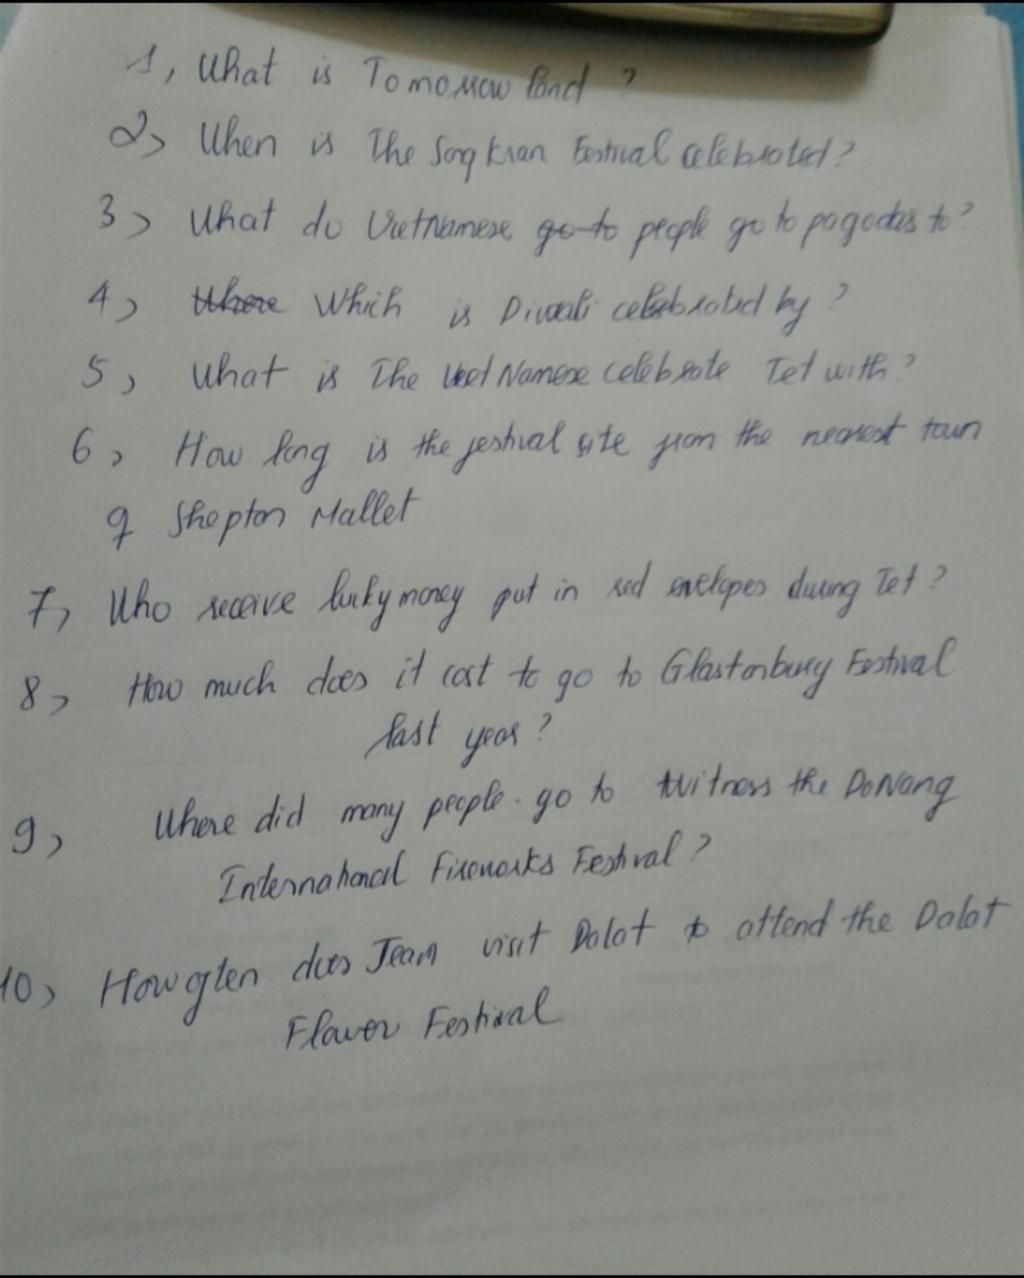 1, What is Tomorrow land ?
2, When is The Song kran Festival celebrated ?
3, What do VietNamese go to people go to pagodas to ?
4, Where Which is Diwali celebrated by ?
5, What is The VietNamese celebrate Tet with ?
6, How long is the festival site from the nearest town
of Shepton Mallet
7, Who receive lucky money put in red envelopes during Tet ?
8, How much does it cost to go to Glastonbury Festival
last year ?
9, Where did many people go to witness the DaNang
International Fireworks Festival ?
10, How often does Jean visit Dalat to attend the Dalat
Flower Festival